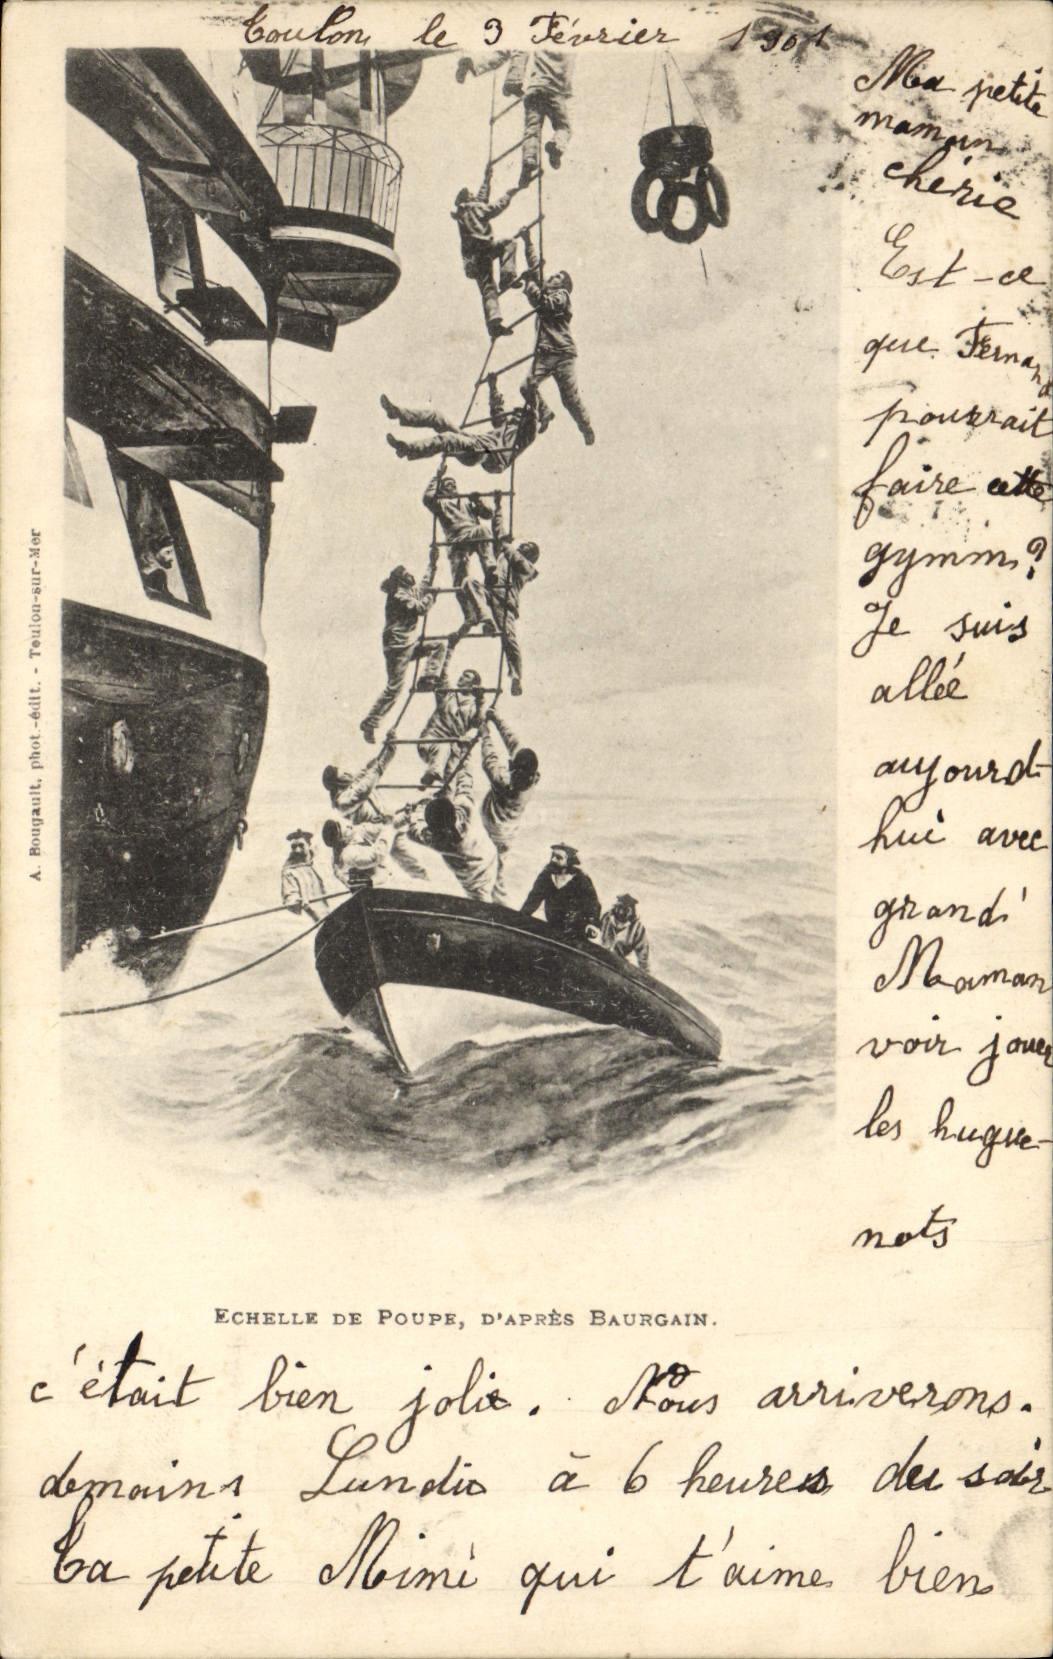 Toulon le 3 Février 1901
Ma petite
maman
chérie
Est-ce
que Fernand
pourrait
faire cette
gymm?
Je suis
allée
aujourd-
hui avec
grand'
Maman
voir jouer
les hugue-
nots
A. Bougault, phot.-édit. - Toulon-sur-Mer
ECHELLE DE POUPE, D'APRÈS BAURGAIN.
c'était bien jolie. Nous arriverons.
demain Lundi à 6 heures du soir
Ta petite Mimi qui t'aime bien